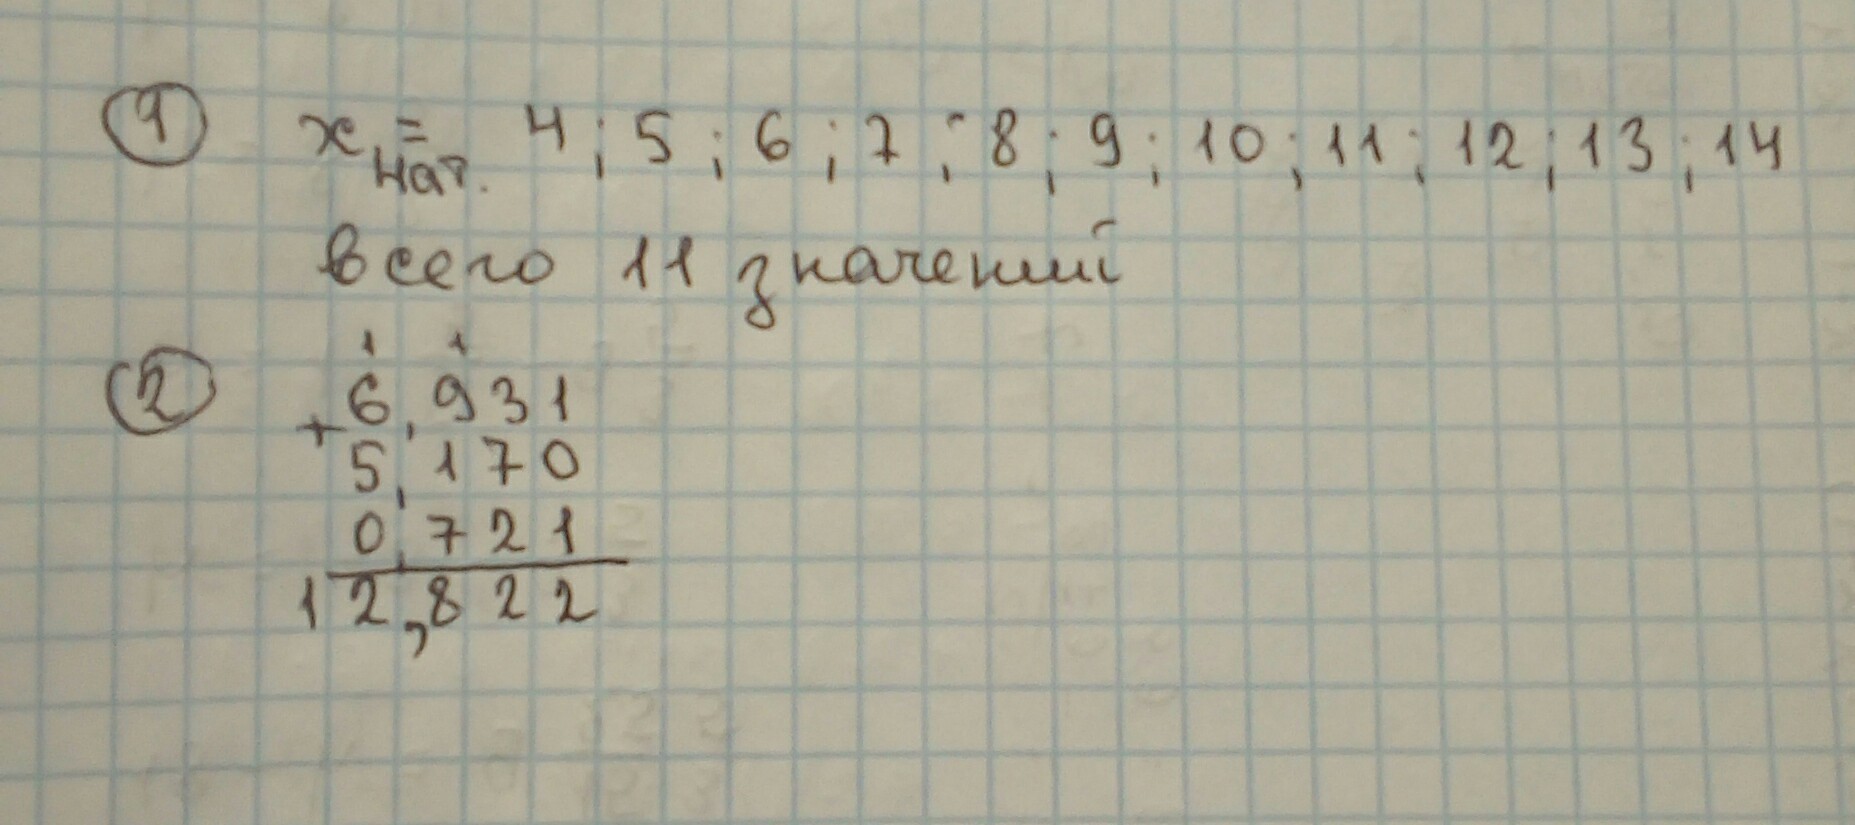 1 x нат. = 4; 5; 6; 7; 8; 9; 10; 11; 12; 13; 14
всего 11 значений
1 1
2 6,931
+ 5,170
0,721
12,822